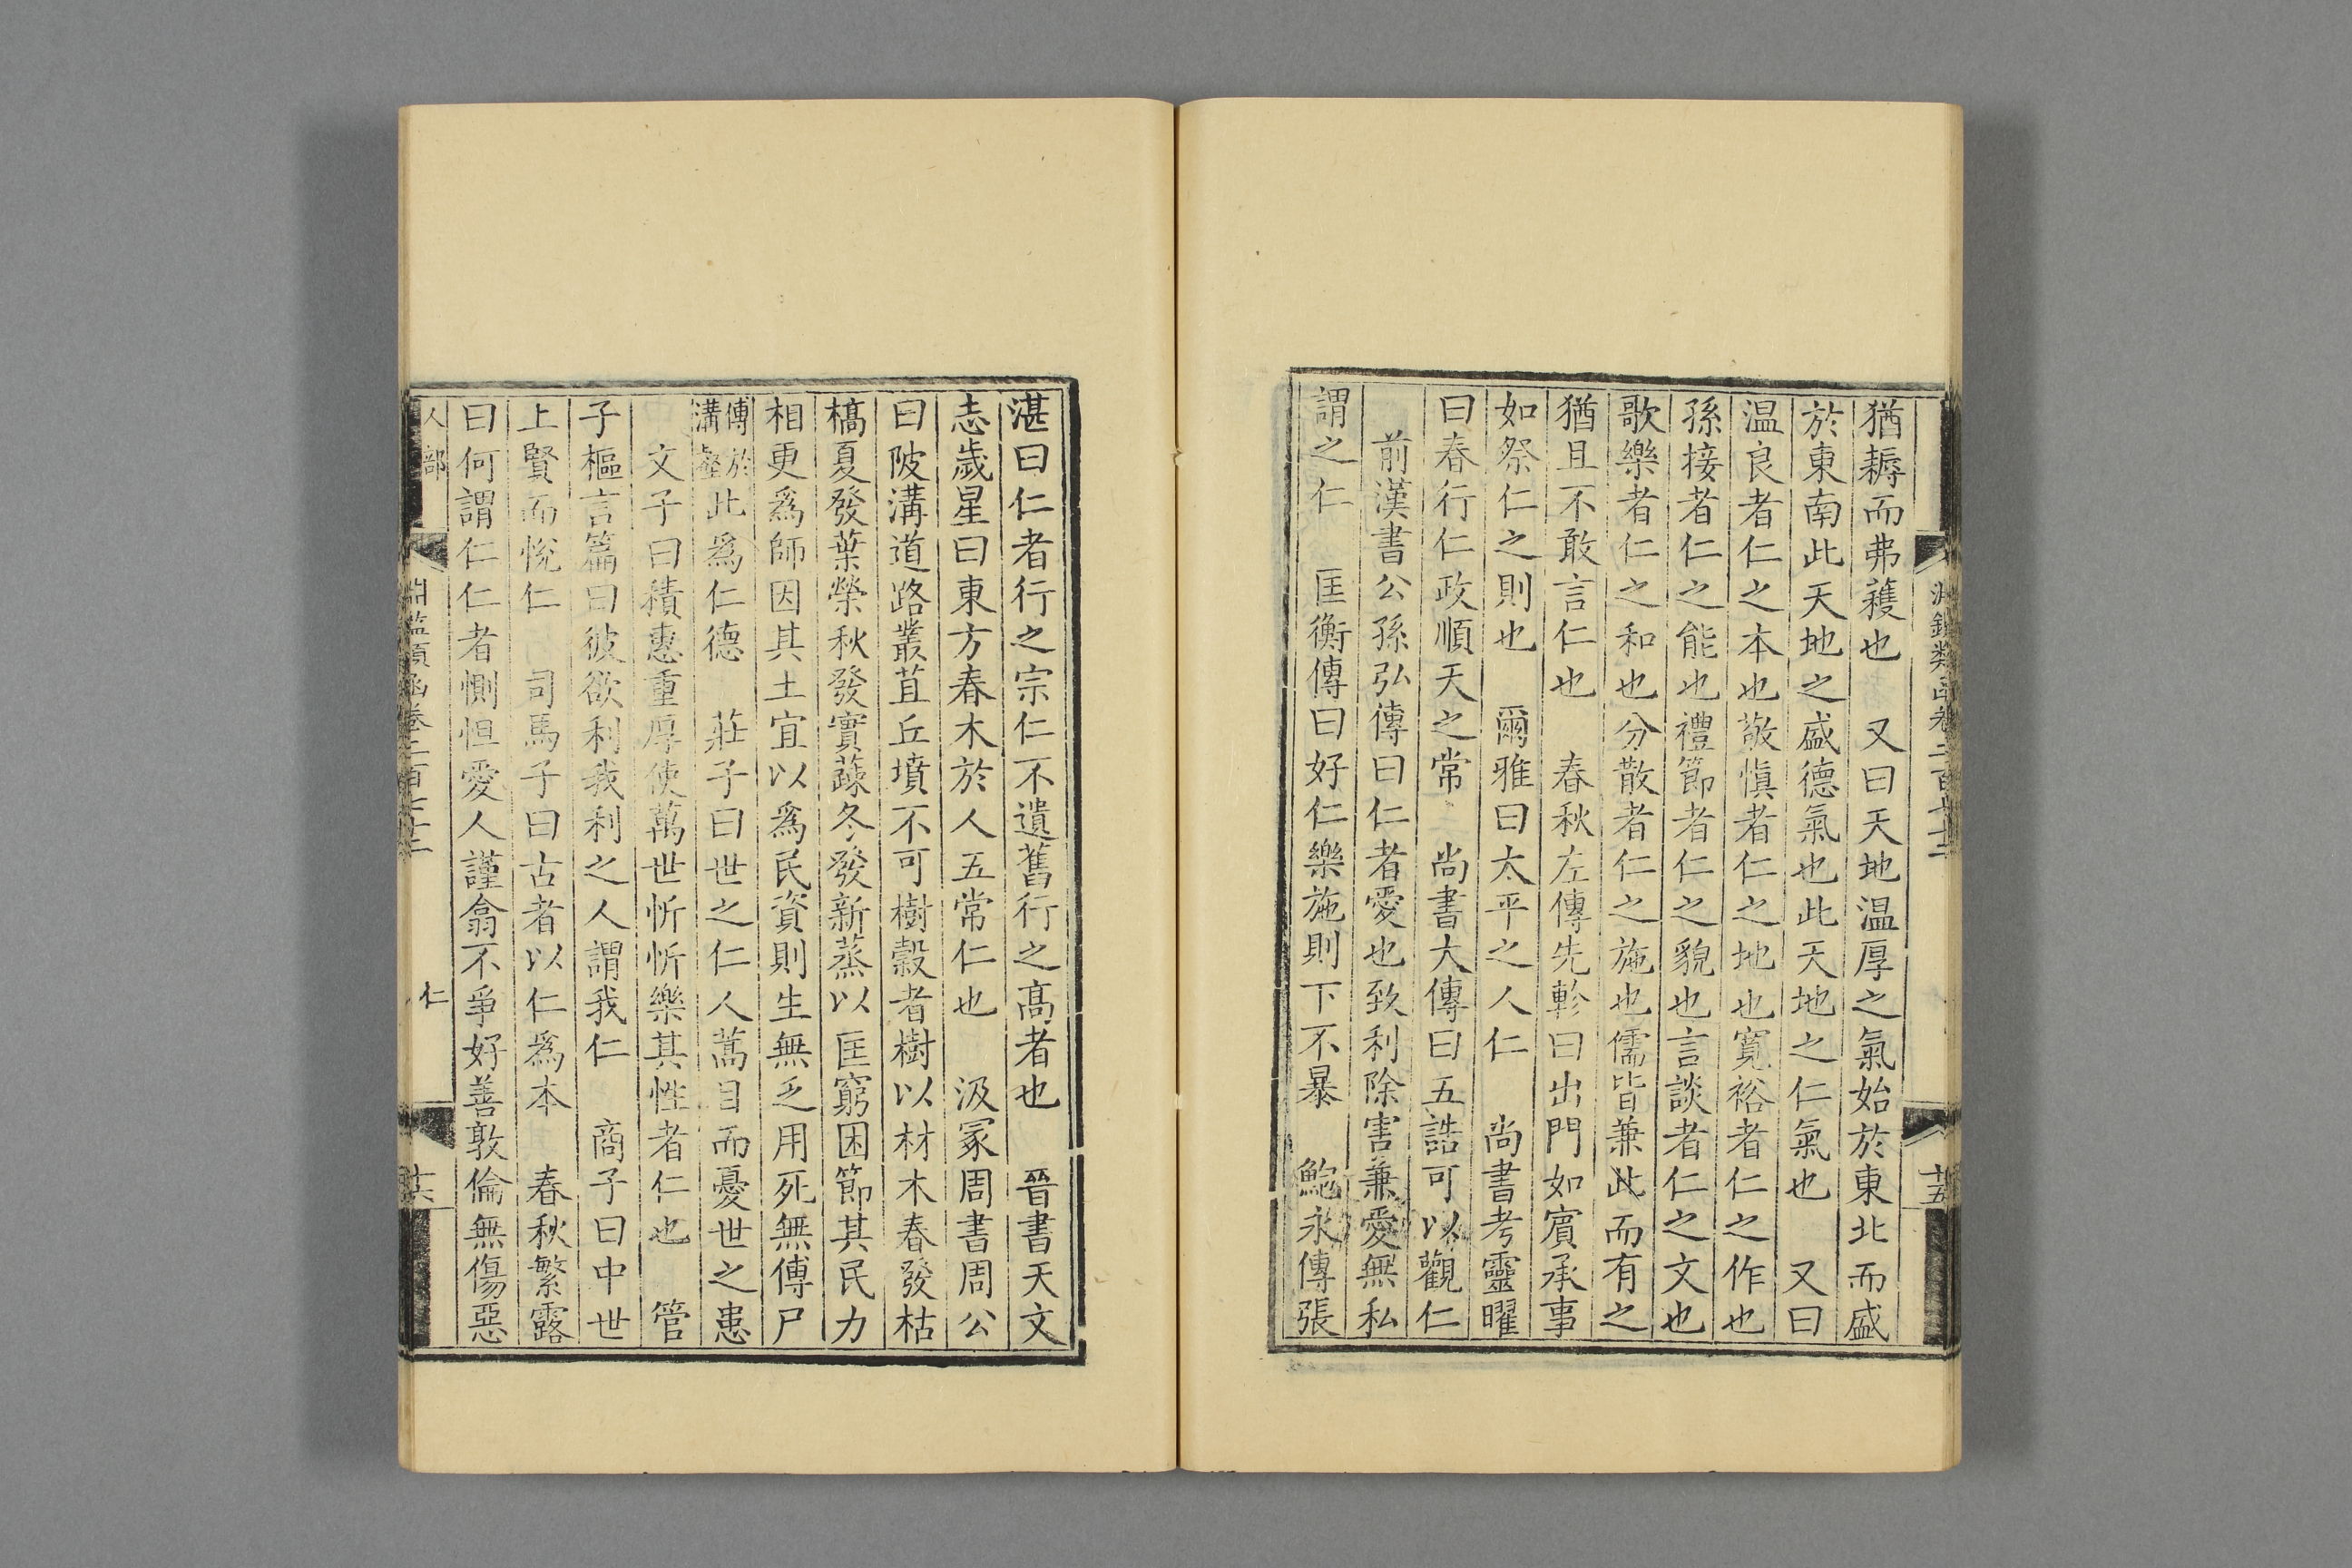 淵鑑類函卷二百七十二
十五
猶耨而弗穫也　又曰天地温厚之氣始於東北而盛
於東南此天地之盛德氣也此天地之仁氣也　又曰
温良者仁之本也敬愼者仁之地也寬裕者仁之作也
孫接者仁之能也禮節者仁之貌也言談者仁之文也
歌樂者仁之和也分散者仁之施也儒皆兼此而有之
猶且不敢言仁也　春秋左傳先軫曰出門如賓承事
如祭仁之則也　爾雅曰太平之人仁　尚書考靈曜
曰春行仁政順天之常　尚書大傳曰五誥可以觀仁
前漢書公孫弘傳曰仁者愛也致利除害兼愛無私
謂之仁　匡衡傳曰好仁樂施則下不暴　鮑永傳張
湛曰仁者行之宗仁不遺舊行之高者也　晉書天文
志歲星曰東方春木於人五常仁也　汲冢周書周公
曰陂溝道路叢苴丘墳不可樹穀者樹以材木春發枯
槁夏發葉榮秋發實蔬冬發新蒸以匡窮困節其民力
相更爲師因其土宜以爲民資則生無乏用死無傳尸
傳於
溝壑
此爲仁德　莊子曰世之仁人蒿目而憂世之患
文子曰積惠重厚使萬世忻忻樂其性者仁也　管
子樞言篇曰彼欲利我利之人謂我仁　商子曰中世
上賢而悅仁　司馬子曰古者以仁爲本　春秋繁露
曰何謂仁仁者惻怛愛人謹翕不爭好善敦倫無傷惡
人部
淵鑑類函卷二百七十二
仁
十六